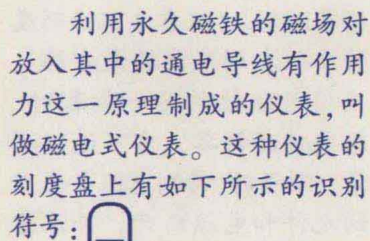 利用永久磁铁的磁场对
放入其中的通电导线有作用
力这一原理制成的仪表,叫
做磁电式仪表。这种仪表的
刻度盘上有如下所示的识别
符号: